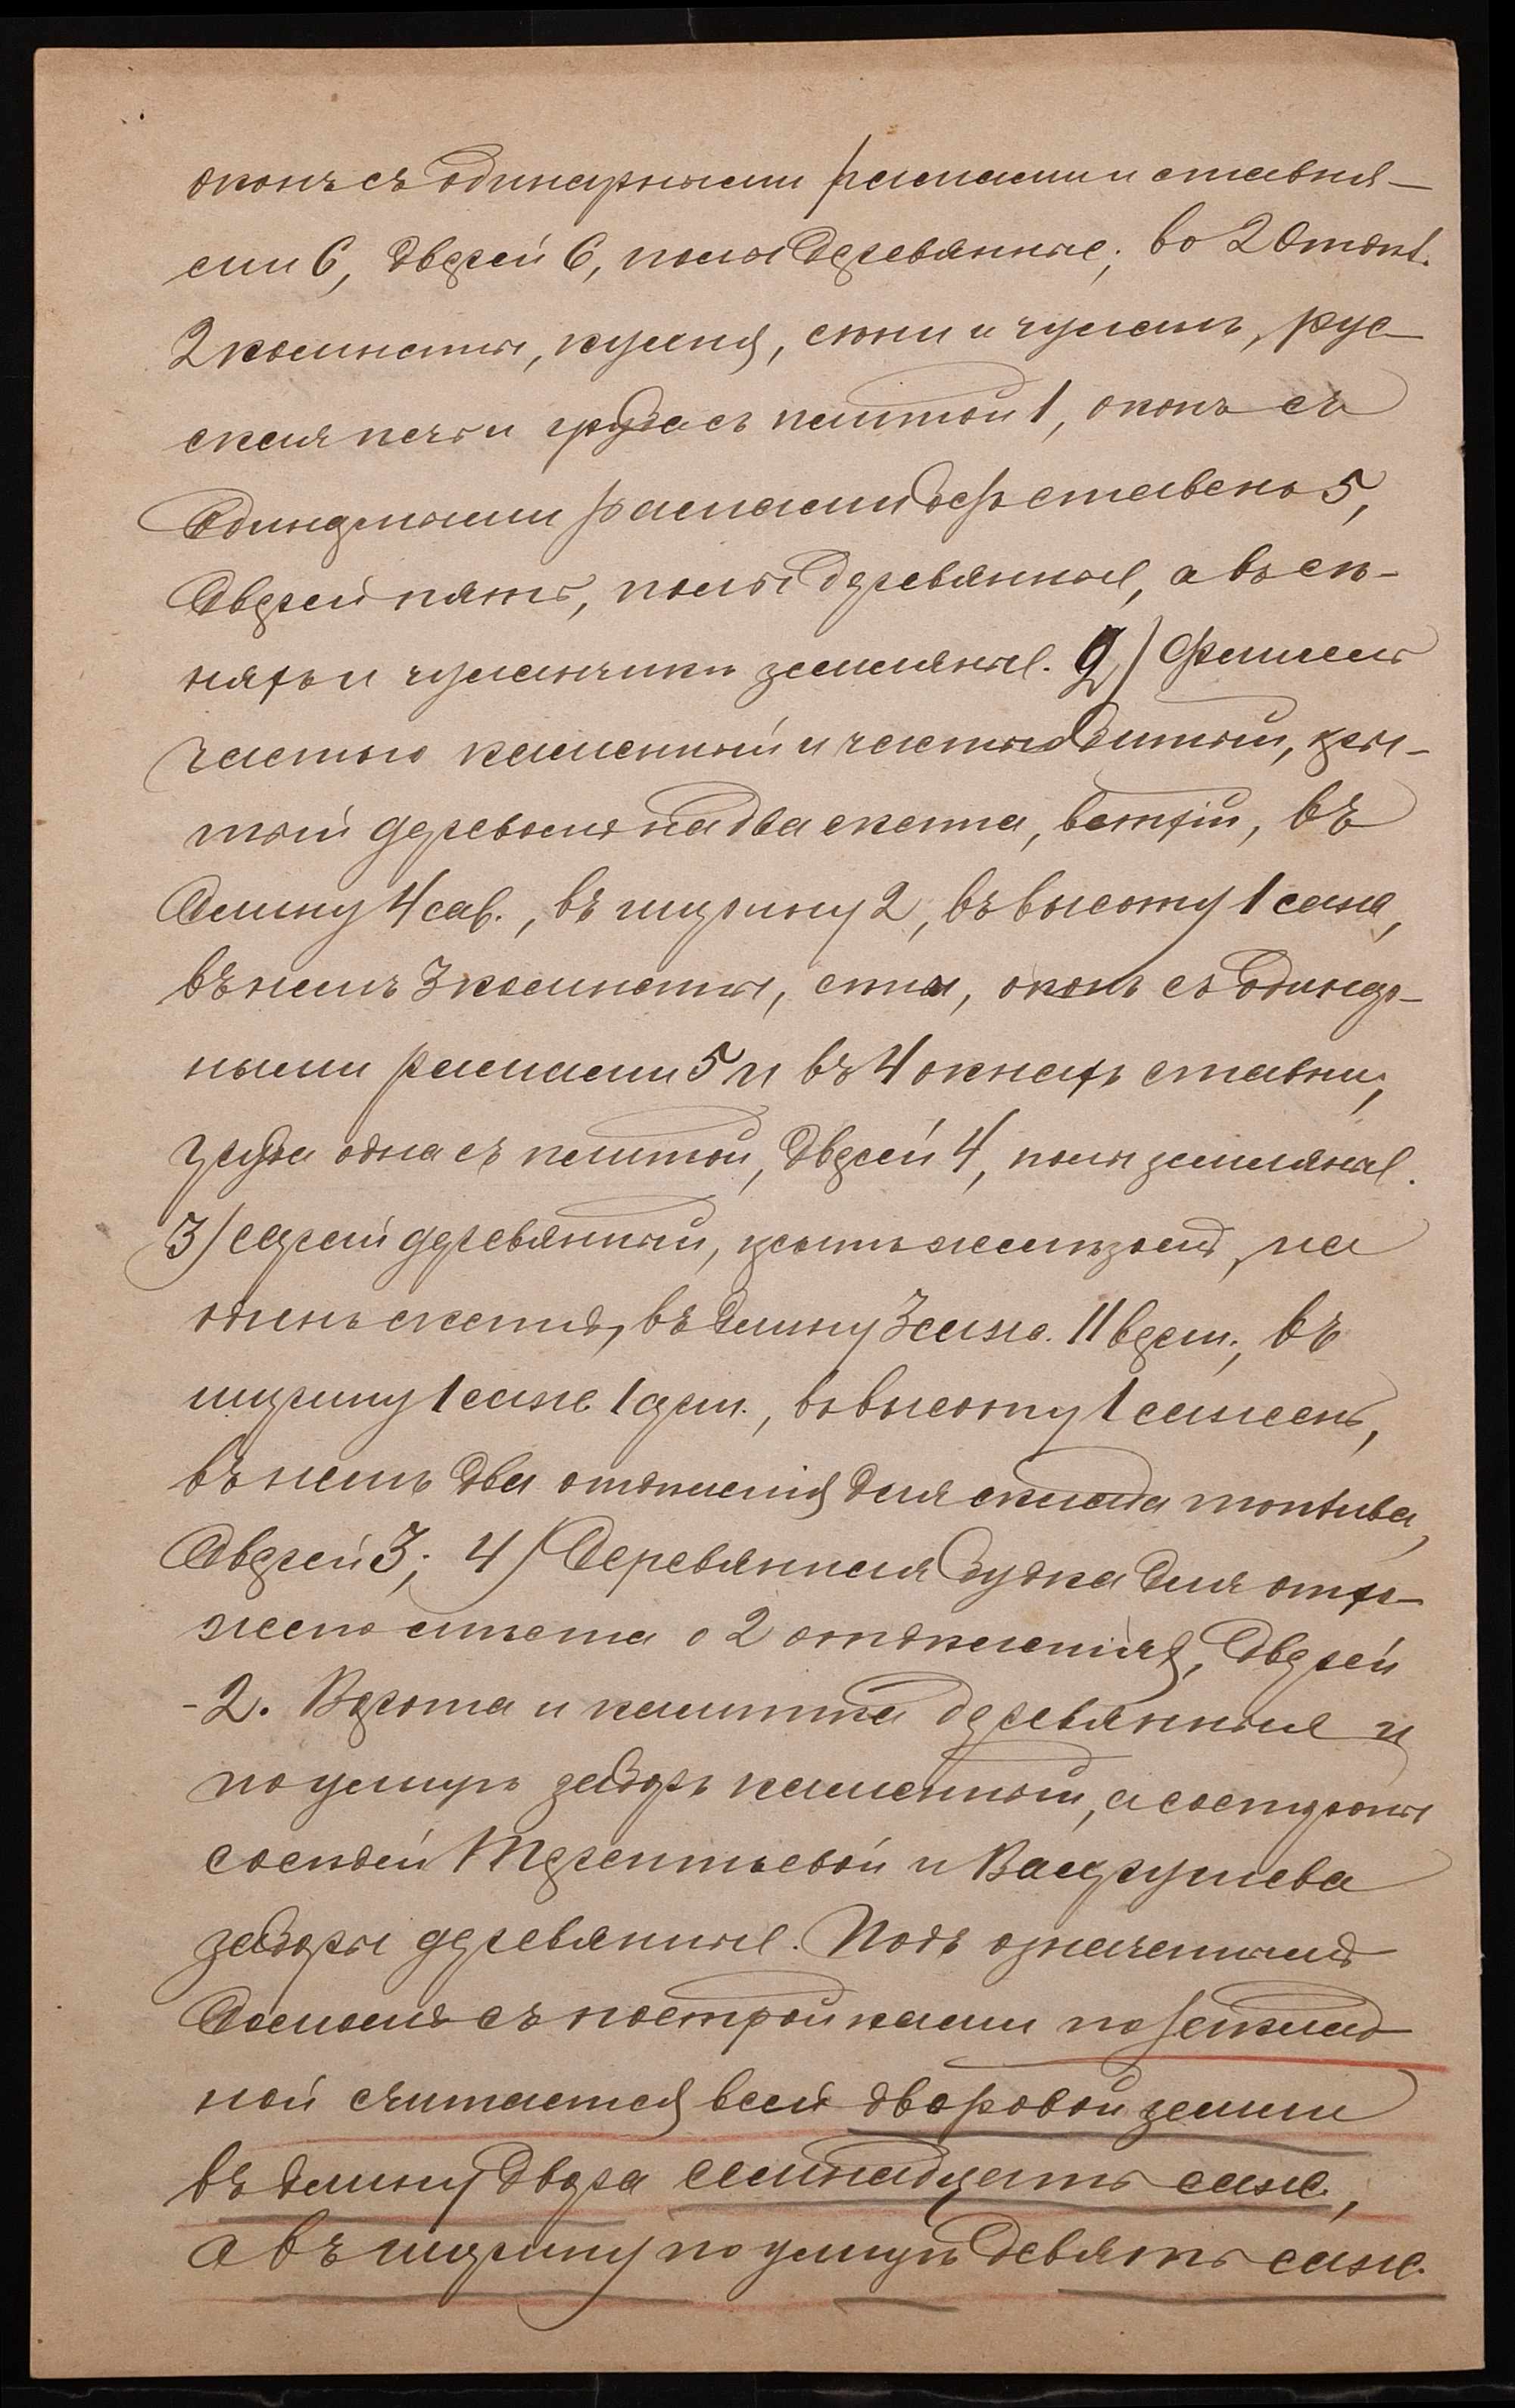 оконъ съ одинарными рамами и ставня-
ми 6, дверей 6, полы деревянные; во 2 отдѣл.
2 комнаты, кухня, сѣни и чуланъ, рус-
ская печь и груба съ плитой 1, оконъ съ
одинарными рамами безъ ставень 5,
дверей пять, полы деревянные, а въ сѣ-
няхъ и чуланчикѣ земляные. 2) Флигель
частью каменный и частью битый, кры-
тый деревомъ на два ската, ветхій, въ
длину 4 саж., въ ширину 2, въ высоту 1 саж.,
въ немъ 3 комнаты, сѣни, оконъ съ одинар-
ными рамами 5 и въ 4 окнахъ ставни,
груба одна съ плитой, дверей 4, полы земляные.
3) сарай деревянный, крытъ желѣзомъ, на
одинъ скатъ, въ длину 3 саж. 11 верш., въ
ширину 1 саж. 1 арш., въ высоту 1 сажень,
въ немъ два отдѣленія для склада топлива,
дверей 3; 4) Деревянная будка для отхо-
жего мѣста о 2 отдѣленіяхъ, дверей
-2. Ворота и калитка деревянные и
по улицѣ заборъ каменный, а со стороны
сосѣдей Терентьевой и Вахрушева
заборы деревянные. Подъ означеннымъ
домомъ съ постройками по оклад-
ной считается всей дворовой земли
въ длину двора семнадцать саж.,
а въ ширину по улицѣ девять саж.